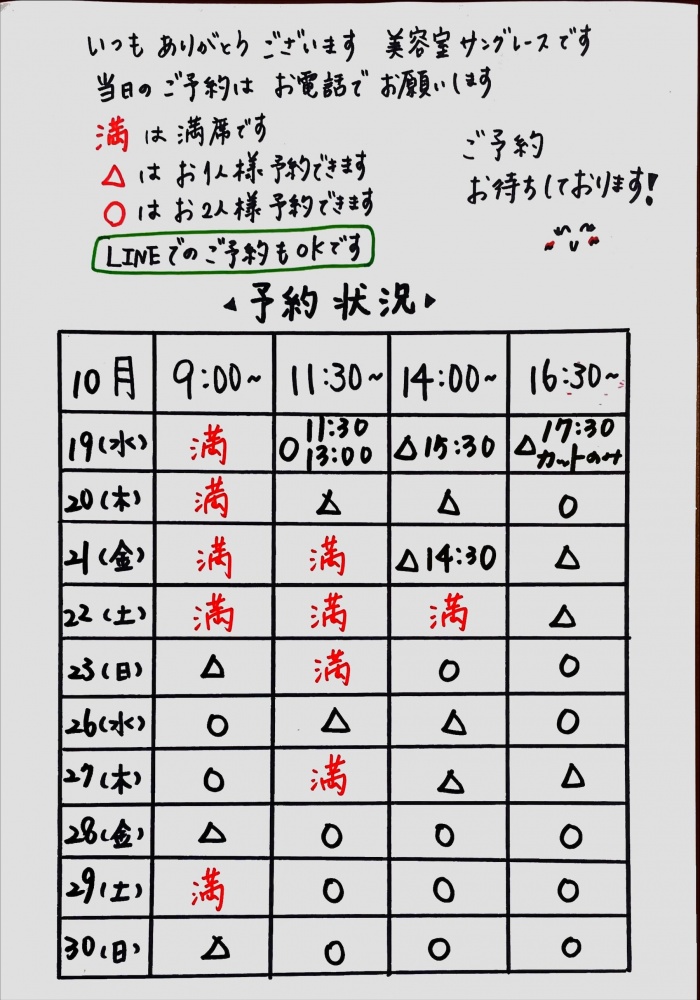 いつも ありがとう ございます 美容室 サングレースです
当日の ご予約は お電話で お願いします
満 は 満席です
△ は お1人様 予約できます
○ は お2人様 予約できます
ご予約
お待ちしております!
LINEでのご予約もOKです
◀予約状況▶
10月 9:00~ 11:30~ 14:00~ 16:30~
19(水) 満 ○11:30 13:00 △15:30 △17:30 カットのみ
20(木) 満 △ △ ○
21(金) 満 満 △14:30 △
22(土) 満 満 満 △
23(日) △ 満 ○ ○
26(水) ○ △ △ ○
27(木) ○ 満 △ △
28(金) △ ○ ○ ○
29(土) 満 ○ ○ ○
30(日) △ ○ ○ ○